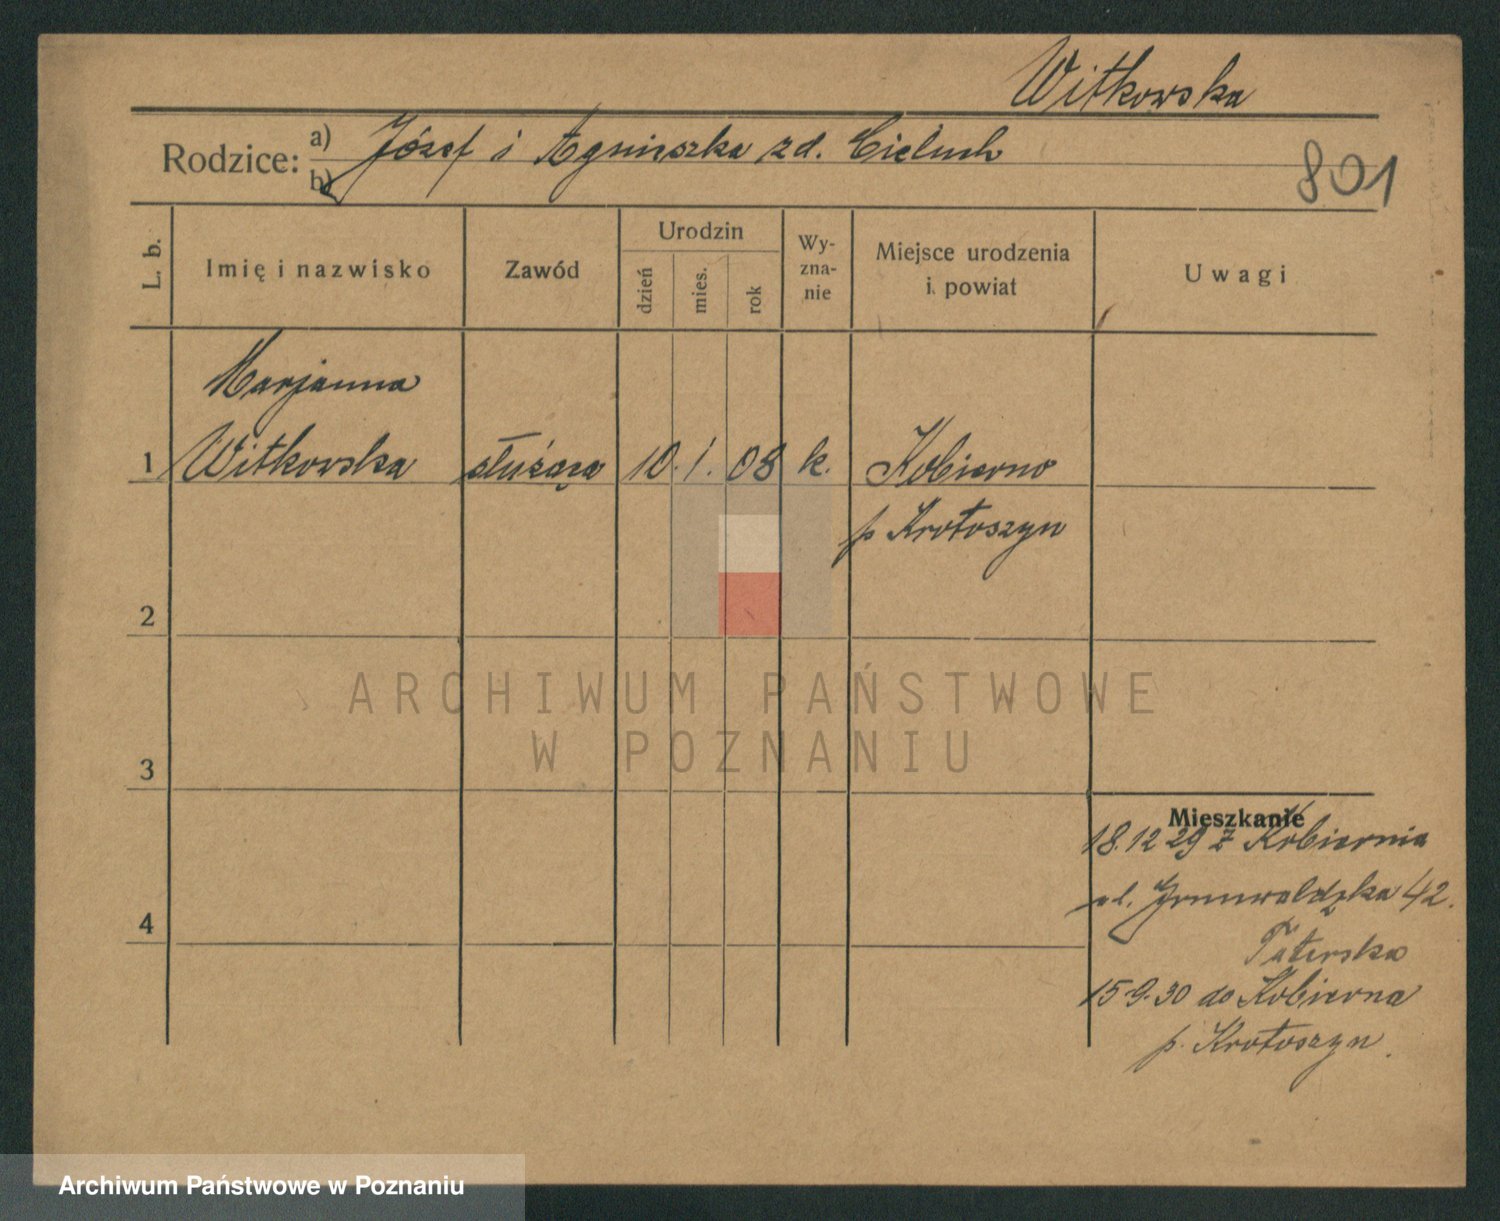 Witkowska
Rodzice: a) Józef i Agnieszka zd. Cieluch
b)
801
L. b. Imię i nazwisko Zawód Urodzin dzień mies. rok Wy-zna-nie Miejsce urodzenia i powiat Uwagi
Marjanna
1 Witkowska służąca 10. 1. 08 k. Kobierno
p Krotoszyn
2
ARCHIWUM PAŃSTWOWE
W POZNANIU
3
Mieszkanie
18.12 29 z Kobiernia
ul. Grunwaldzka 42.
4
Taterska
15.9.30 do Kobierna
p. Krotoszyn.
Archiwum Państwowe w Poznaniu